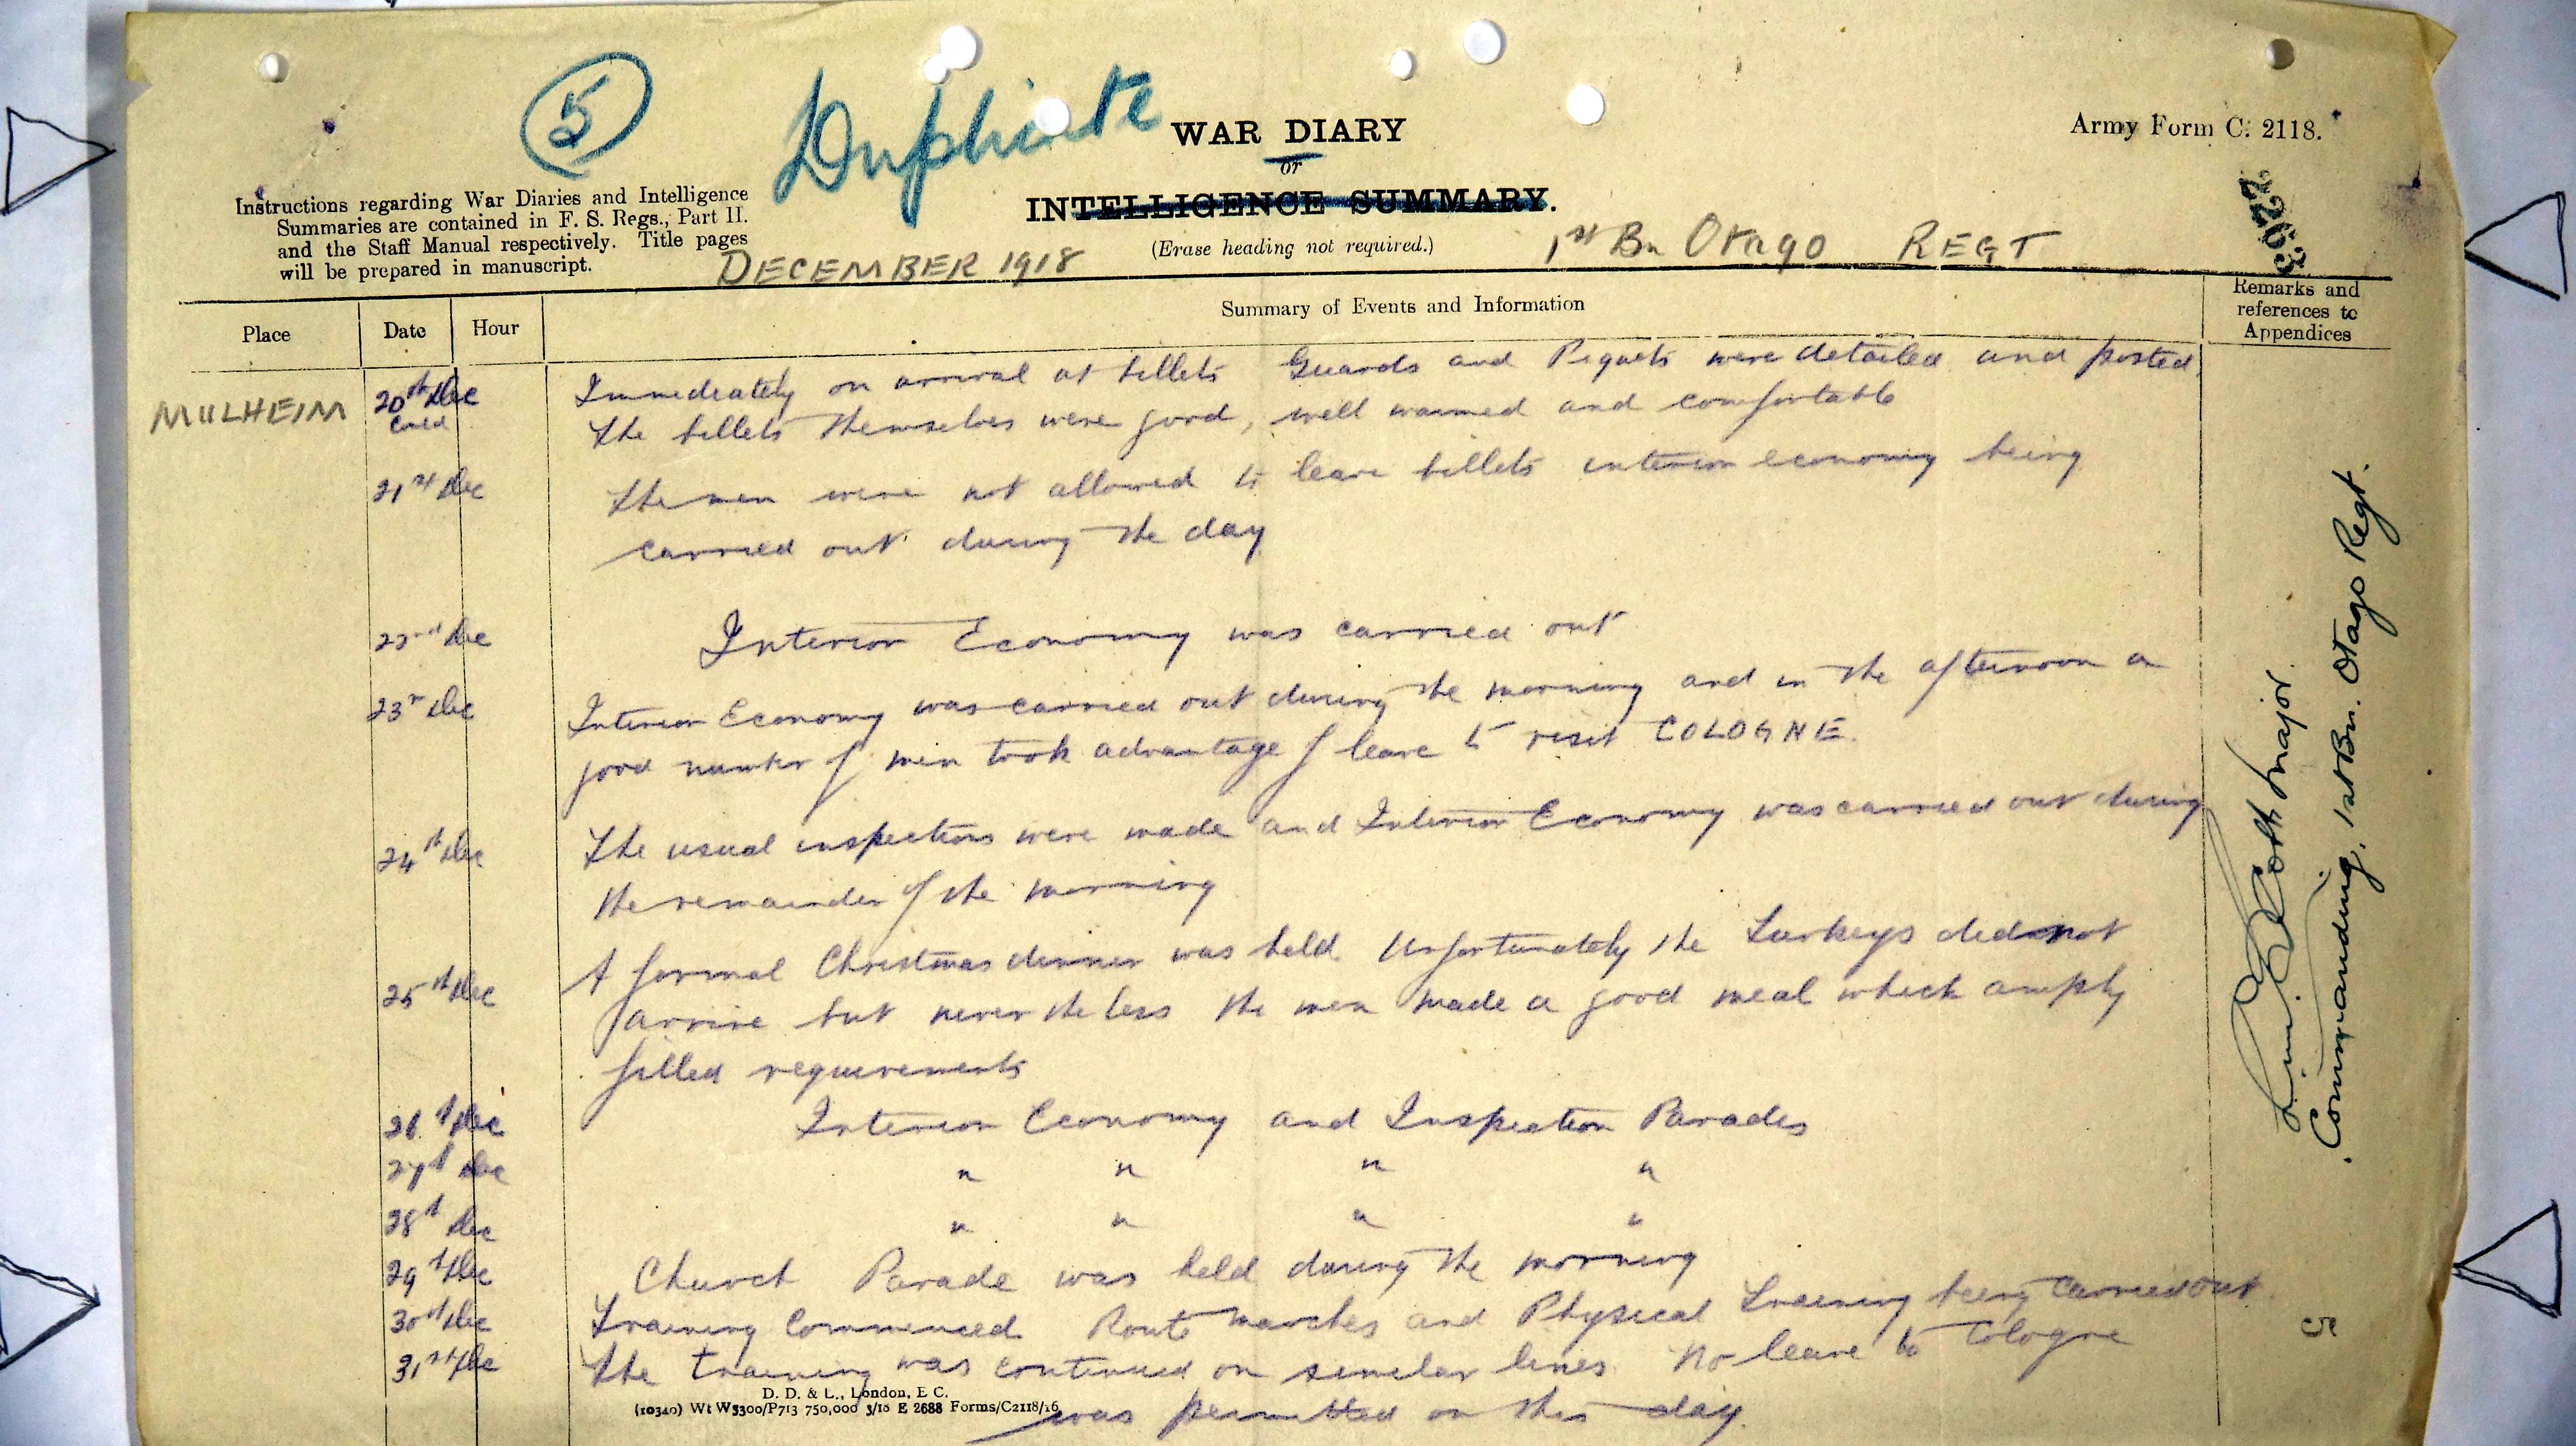 5
Duplicate
WAR DIARY
or
INTELLIGENCE SUMMARY.
(Erase heading not required.)
Army Form C. 2118.
2263
Instructions regarding War Diaries and Intelligence
Summaries are contained in F. S. Regs., Part II.
and the Staff Manual respectively. Title pages
will be prepared in manuscript.
DECEMBER 1918
1st Bn Otago REGT
Place
Date
Hour
Summary of Events and Information
Remarks and
references to
Appendices
MULHEIM
20th Dec
Immediately on arrival at billets Guards and Piquets were detailed and posted.
The billets themselves were good, well warmed and comfortable
21st Dec
The men were not allowed to leave billets interior economy being
carried out during the day
22nd Dec
Interior Economy was carried out
23r Dec
Interior Economy was carried out during the morning and in the afternoon a
good number of men took advantage of leave to visit COLOGNE.
24th Dec
The usual inspections were made and Interior Economy was carried out during
the remainder of the morning
25th Dec
A formal Christmas dinner was held Unfortunately the Turkeys did not
arrive but never the less the men made a good meal which amply
filled requirements
26th Dec
Interior Economy and Inspection Parades
27th Dec
" " " "
28th Dec
" " " "
29th Dec
Church Parade was held during the morning
30th Dec
Training Commenced. Route marches and Physical Training being carried out.
31st Dec
The training was continued on similar lines. No leave to Cologne
was permitted on this day.
D. D. & L., London, E C.
(10340) Wt W5300/P713 750,000 3/18 E 2688 Forms/C2118/16
Scott Major.
Commanding, 1st Bn. Otago Regt.
5